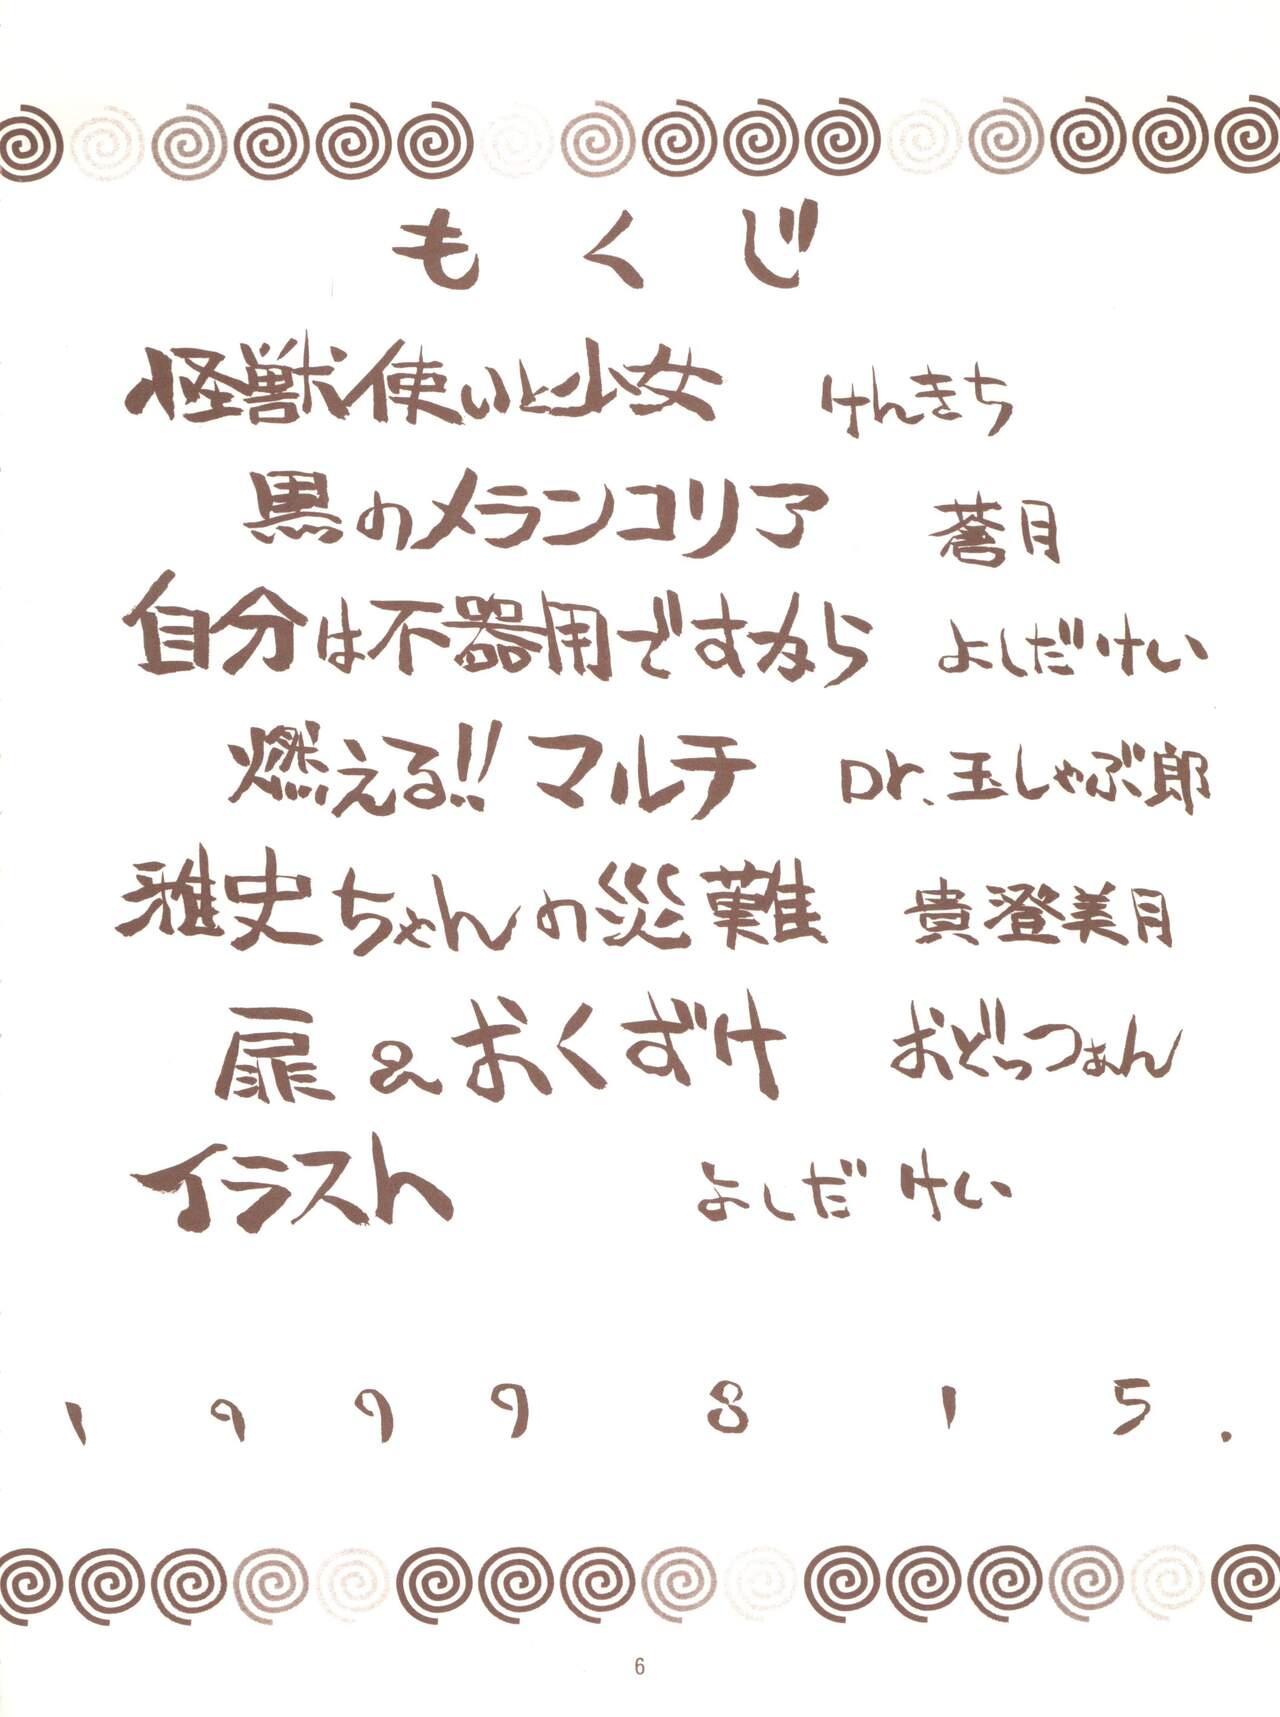 もくじ
怪獣使いと少女 けんきち
黒のメランコリア 蒼月
自分は不器用ですから よしだけい
燃える!!マルチ Dr.玉しゃぶ郎
雅史ちゃんの災難 貴澄美月
扉&おくずけ おどっつぁん
イラスト よしだけい
1999 8 15.
6